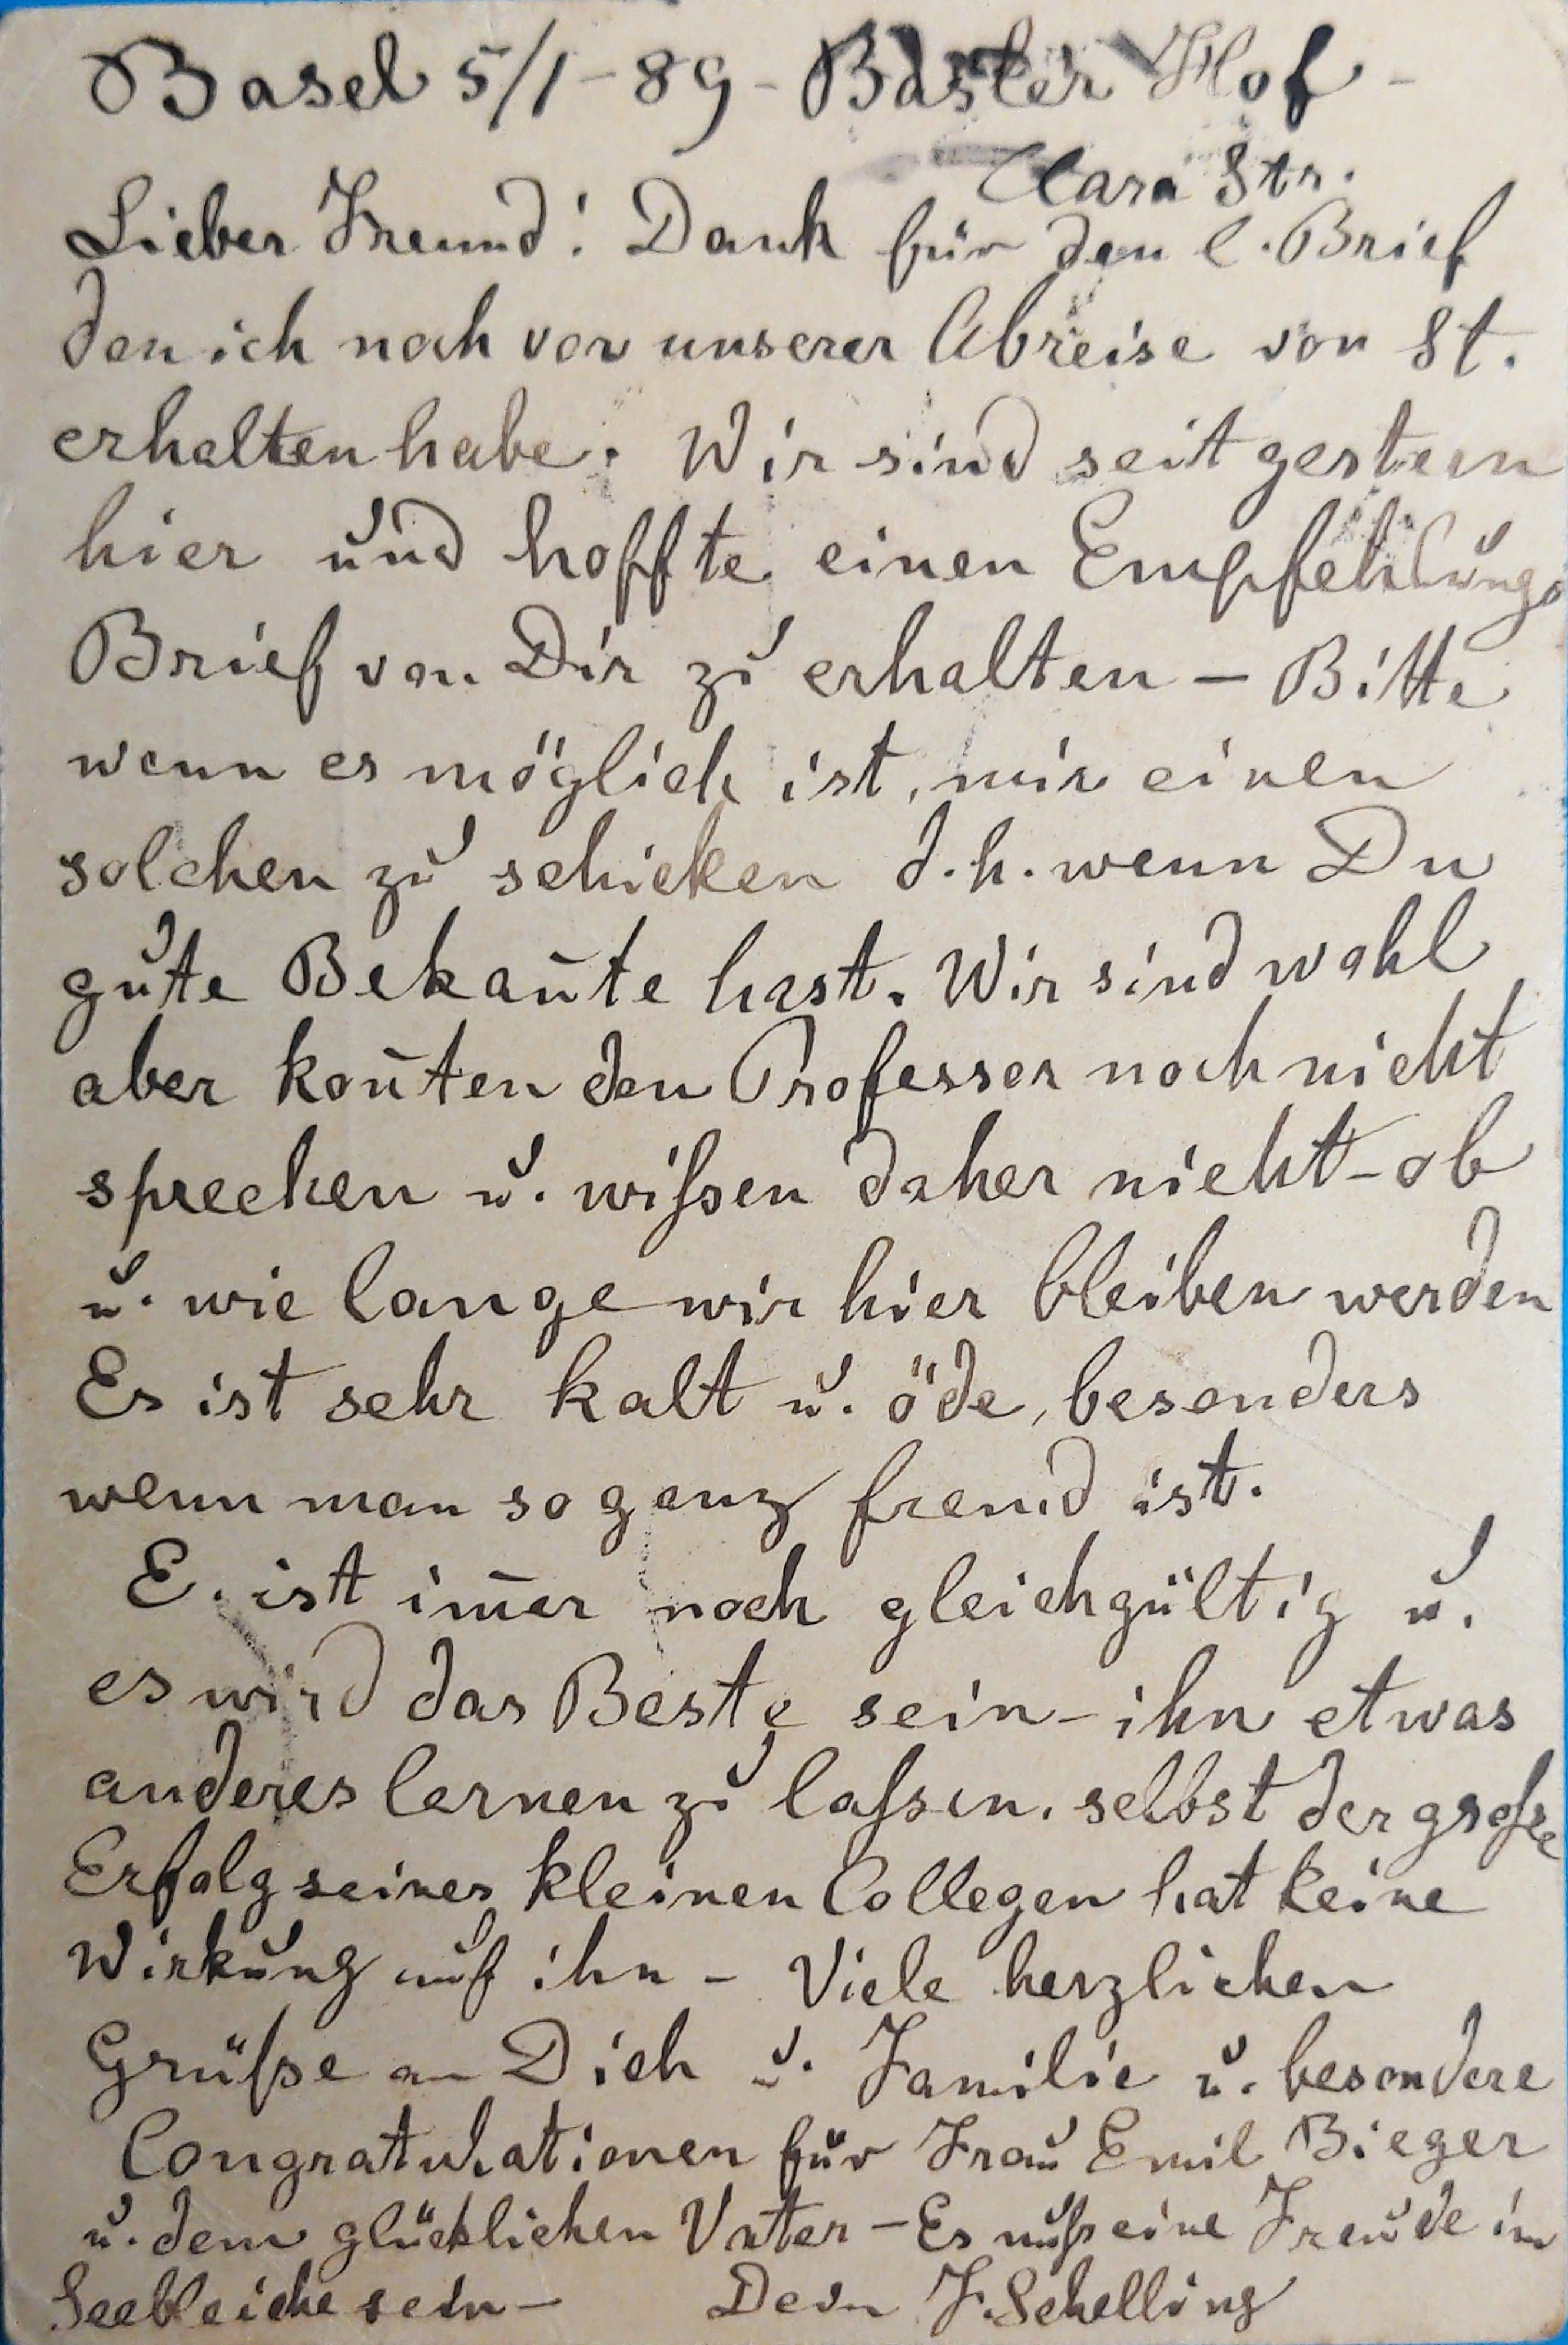 Basel 5/1-89 - Basler Hof -
Clara Str.
Lieber Freund! Dank für den l. Brief
den ich noch vor unserer Abreise von St.
erhalten habe. Wir sind seit gestern
hier und hoffte einen Empfehlungs
Brief von Dir zu erhalten - Bitte
wenn es möglich ist, mir einen
solchen zu schicken d.h. wenn Du
gute Bekan̄te hast. Wir sind wohl
aber kon̄ten den Professor noch nicht
sprechen u. wißen daher nicht - ob
u. wie lange wir hier bleiben werden
Es ist sehr kalt u. öde, besonders
wenn man so ganz fremd ist.
E. ist im̄er noch gleichgültig u.
es wird das Beste sein - ihn etwas
anderes lernen zu laßen. selbst der große
Erfolg seines kleinen Collegen hat keine
Wirkung auf ihn - Viele herzlichen
Grüße an Dich u. Familie u. besondere
Congratulationen für Frau Emil Bieger
u. dem glücklichen Vater - Es muß eine Freude im
Seebleiche sein - Dein F. Schelling